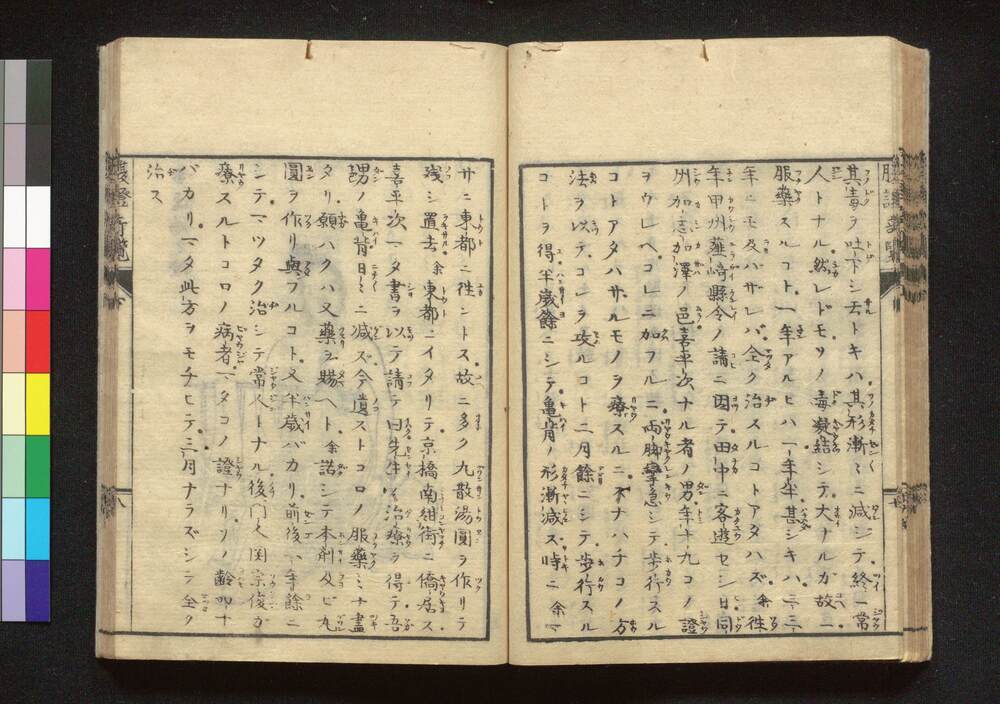 其毒ヲ吐下シ去トキハ其形漸々ニ減シテ終ニ常
人トナル然レドモソノ毒凝結シテ大ナルガ故ニ
服藥スルコト一年アルヒハ一年半甚シキハ二三
年ニモ及ハザレバ全ク治スルコトアタハズ余徃
年甲州韮﨑縣令ノ請ニ因テ田中ニ客遊セシ日同
州加志加澤ノ邑喜平次ナル者ノ男年十九コノ證
ヲウレヘコレニ加フルニ両脚攣急シテ歩行スル
コトアタハサルモノヲ療スルニスナハチコノ方
法ヲ以テコレヲ攻ルコト二月餘ニシテ歩行スル
コトヲ得半歳餘ニシテ亀背ノ形漸減ス時ニ余マ
サニ東都ニ徃ントス故ニ多ク丸散湯圓ヲ作リテ
残シ置去余東都ニイタリテ京橋南紺街ニ僑居ス
喜平次マタ書ヲ以テ請テ曰先生ノ治療ヲ得テ吾
男ノ亀背日々ニ減ズ今遺ストコロノ服藥ミナ盡
タリ願ハクハ又藥ヲ賜ヘト余諾シテ本劑及ビ丸
圓ヲ作リ與フルコト又半歳バカリ前後一年餘ニ
シテマツタク治シテ常人トナル後門人関宗俊ガ
療スルトコロノ病者マタコノ證ナリソノ齢四十
バカリマタ此方ヲモチヒテ三月ナラズシテ全ク
治ス